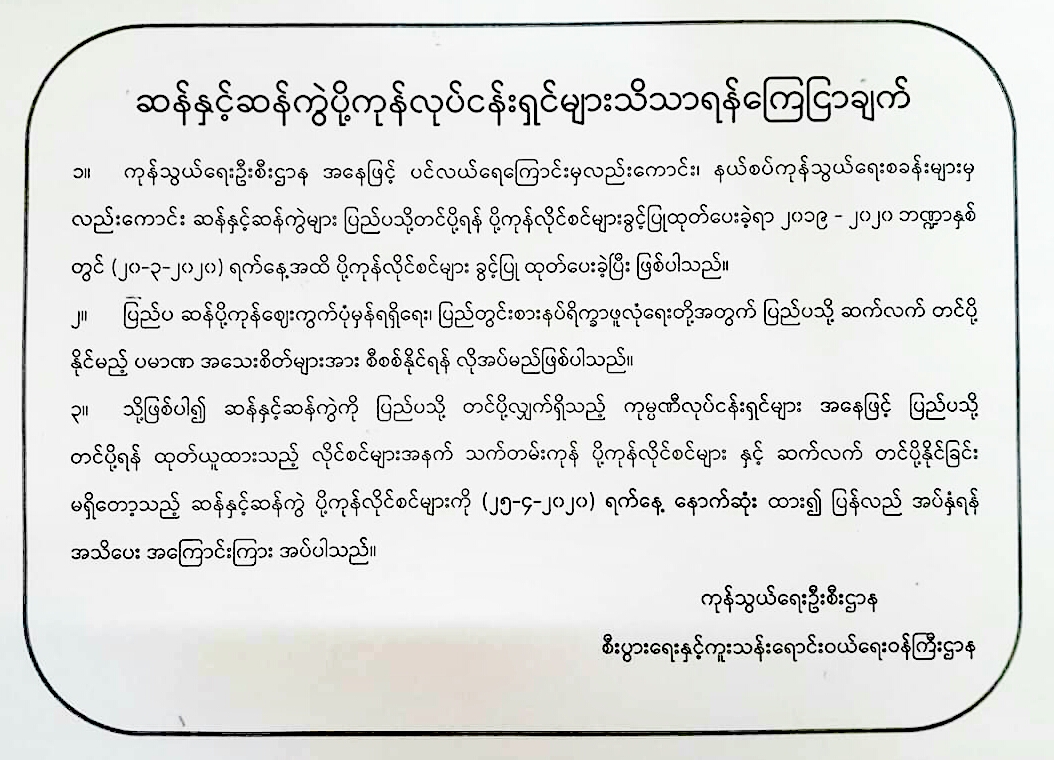 ဆန်နှင့်ဆန်ကွဲပို့ကုန်လုပ်ငန်းရှင်များသိသာရန်ကြေငြာချက်
၁။ ကုန်သွယ်ရေးဦးစီးဌာန အနေဖြင့် ပင်လယ်ရေကြောင်းမှလည်းကောင်း၊ နယ်စပ်ကုန်သွယ်ရေးစခန်းများမှ
လည်းကောင်း ဆန်နှင့်ဆန်ကွဲများ ပြည်ပသို့တင်ပို့ရန် ပို့ကုန်လိုင်စင်များခွင့်ပြုထုတ်ပေးခဲ့ရာ ၂၀၁၉ - ၂၀၂၀ ဘဏ္ဍာနှစ်
တွင် (၂၀-၃-၂၀၂၀) ရက်နေ့အထိ ပို့ကုန်လိုင်စင်များ ခွင့်ပြု ထုတ်ပေးခဲ့ပြီး ဖြစ်ပါသည်။
၂။ ပြည်ပ ဆန်ပို့ကုန်ဈေးကွက်ပုံမှန်ရရှိရေး၊ ပြည်တွင်းစားနပ်ရိက္ခာဖူလုံရေးတို့အတွက် ပြည်ပသို့ ဆက်လက် တင်ပို့
နိုင်မည့် ပမာဏ အသေးစိတ်များအား စီစစ်နိုင်ရန် လိုအပ်မည်ဖြစ်ပါသည်။
၃။ သို့ဖြစ်ပါ၍ ဆန်နှင့်ဆန်ကွဲကို ပြည်ပသို့ တင်ပို့လျှက်ရှိသည့် ကုမ္ပဏီလုပ်ငန်းရှင်များ အနေဖြင့် ပြည်ပသို့
တင်ပို့ရန် ထုတ်ယူထားသည့် လိုင်စင်များအနက် သက်တမ်းကုန် ပို့ကုန်လိုင်စင်များ နှင့် ဆက်လက် တင်ပို့နိုင်ခြင်း
မရှိတော့သည့် ဆန်နှင့်ဆန်ကွဲ ပို့ကုန်လိုင်စင်များကို (၂၅-၄-၂၀၂၀) ရက်နေ့ နောက်ဆုံး ထား၍ ပြန်လည် အပ်နှံရန်
အသိပေး အကြောင်းကြား အပ်ပါသည်။
ကုန်သွယ်ရေးဦးစီးဌာန
စီးပွားရေးနှင့်ကူးသန်းရောင်းဝယ်ရေးဝန်ကြီးဌာန